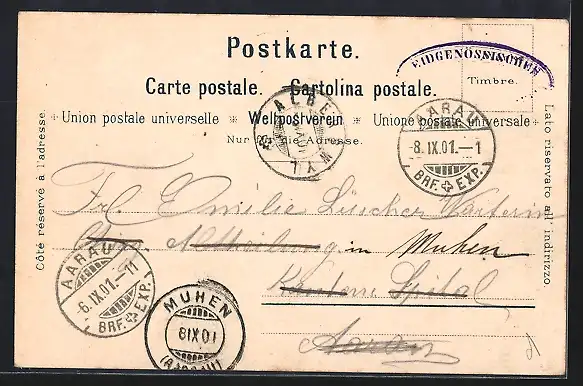 Postkarte.
EIDGENÖSSISCHES
Carte postale. Cartolina postale.
Timbre.
Union postale universelle * Weltpostverein * Unione postale universale
Nur für die Adresse.
Côté réservé à l'adresse.
Lato riservato all' indirizzo
AARAU
-8.IX.01.-1
BRF. EXP.
Frl. Emilie Lüscher Wärterin
Abtheilung in Muhen
Kantons Spital
Aarau
AARAU
-6.IX.01.-11
BRF. EXP.
MUHEN
8 IX 01
(AARGAU)